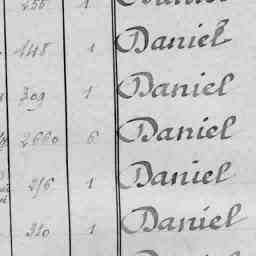 1 Daniel
148 1 Daniel
309 1 Daniel
2660 6 Daniel
216 1 Daniel
310 1 Daniel